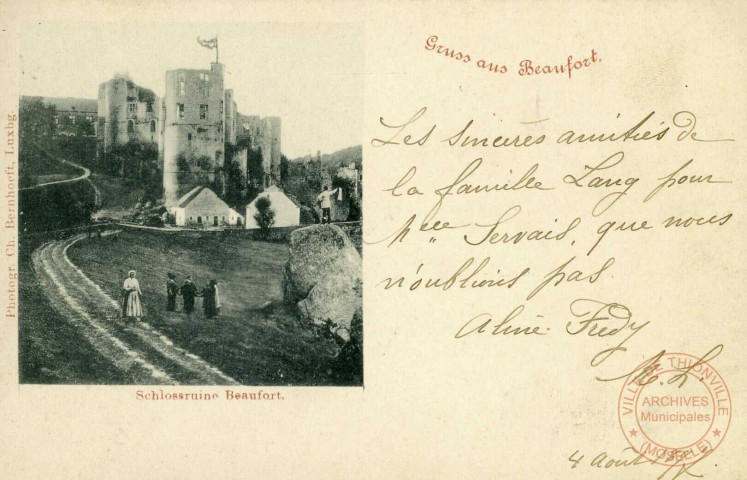 Gruss aus Beaufort.
Photogr. Ch. Bernhoeft, Luxbg.
Schlossruine Beaufort.
Les sincères amitiés de
la famille Lang pour
Mlle Servais, que nous
n'oublions pas.
Aline. Fredy
M. L.
4 Août
VILLE DE THIONVILLE
ARCHIVES
Municipales
(MOSELLE)